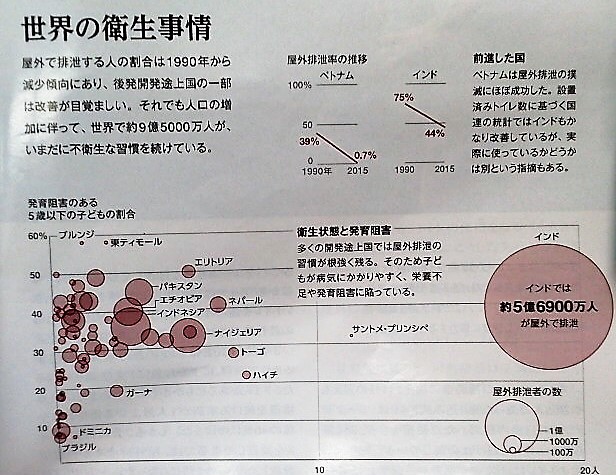 世界の衛生事情
屋外で排泄する人の割合は1990年から
減少傾向にあり、後発開発途上国の一部
は改善が目覚ましい。それでも人口の増
加に伴って、世界で約9億5000万人が、
いまだに不衛生な習慣を続けている。
屋外排泄率の推移
ベトナム
インド
100%
50
0
39%
0.7%
1990年
2015
75%
44%
1990
2015
前進した国
ベトナムは屋外排泄の撲
滅にほぼ成功した。設置
済みトイレ数に基づく国
連の統計ではインドもか
なり改善しているが、実
際に使っているかどうか
は別という指摘もある。
発育阻害のある
5歳以下の子どもの割合
60%
50
40
30
20
10
ブルンジ
東ティモール
エリトリア
パキスタン
エチオピア
インドネシア
ネパール
ナイジェリア
トーゴ
ハイチ
ガーナ
ドミニカ
ブラジル
サントメ・プリンシペ
衛生状態と発育阻害
多くの開発途上国では屋外排泄の
習慣が根強く残る。そのため子ど
もが病気にかかりやすく、栄養不
足や発育阻害に陥っている。
インド
インドでは
約5億6900万人
が屋外で排泄
屋外排泄者の数
1億
1000万
100万
10
20人